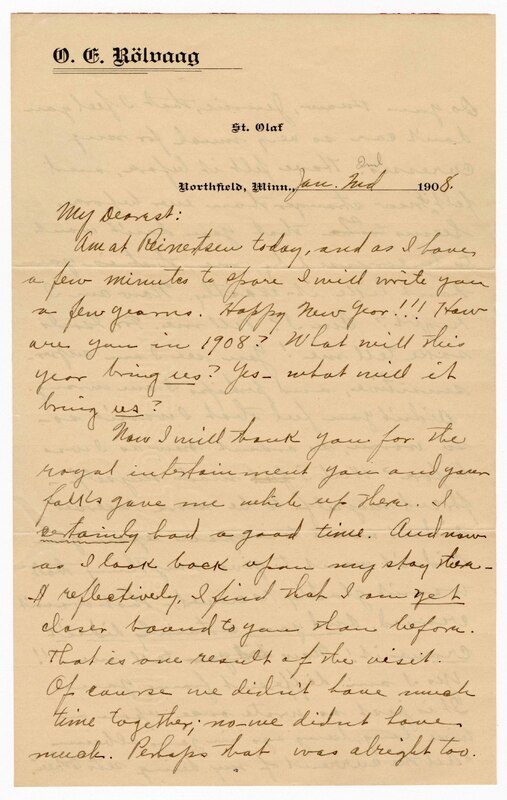 O. E. Rölvaag
St. Olaf
2nd
Northfield, Minn., Jan. 2nd 1908.
My Dearest:
Am at Reinertsen today, and as I have
a few minutes to spare I will write you
a few yearns. Happy New Year!!! How
are you in 1908? What will this
year bring us? Yes - what will it
bring us?
Now I will thank you for the
royal intertainment you and your
folks gave me while up there. I
certainly had a good time. And now
as I look back upon my stay there -
reflectively, I find that I am yet
closer bound to you than before.
That is one result of the visit.
Of course we didn't have much
time together; no-we didn't have
much. Perhaps that was alright too.